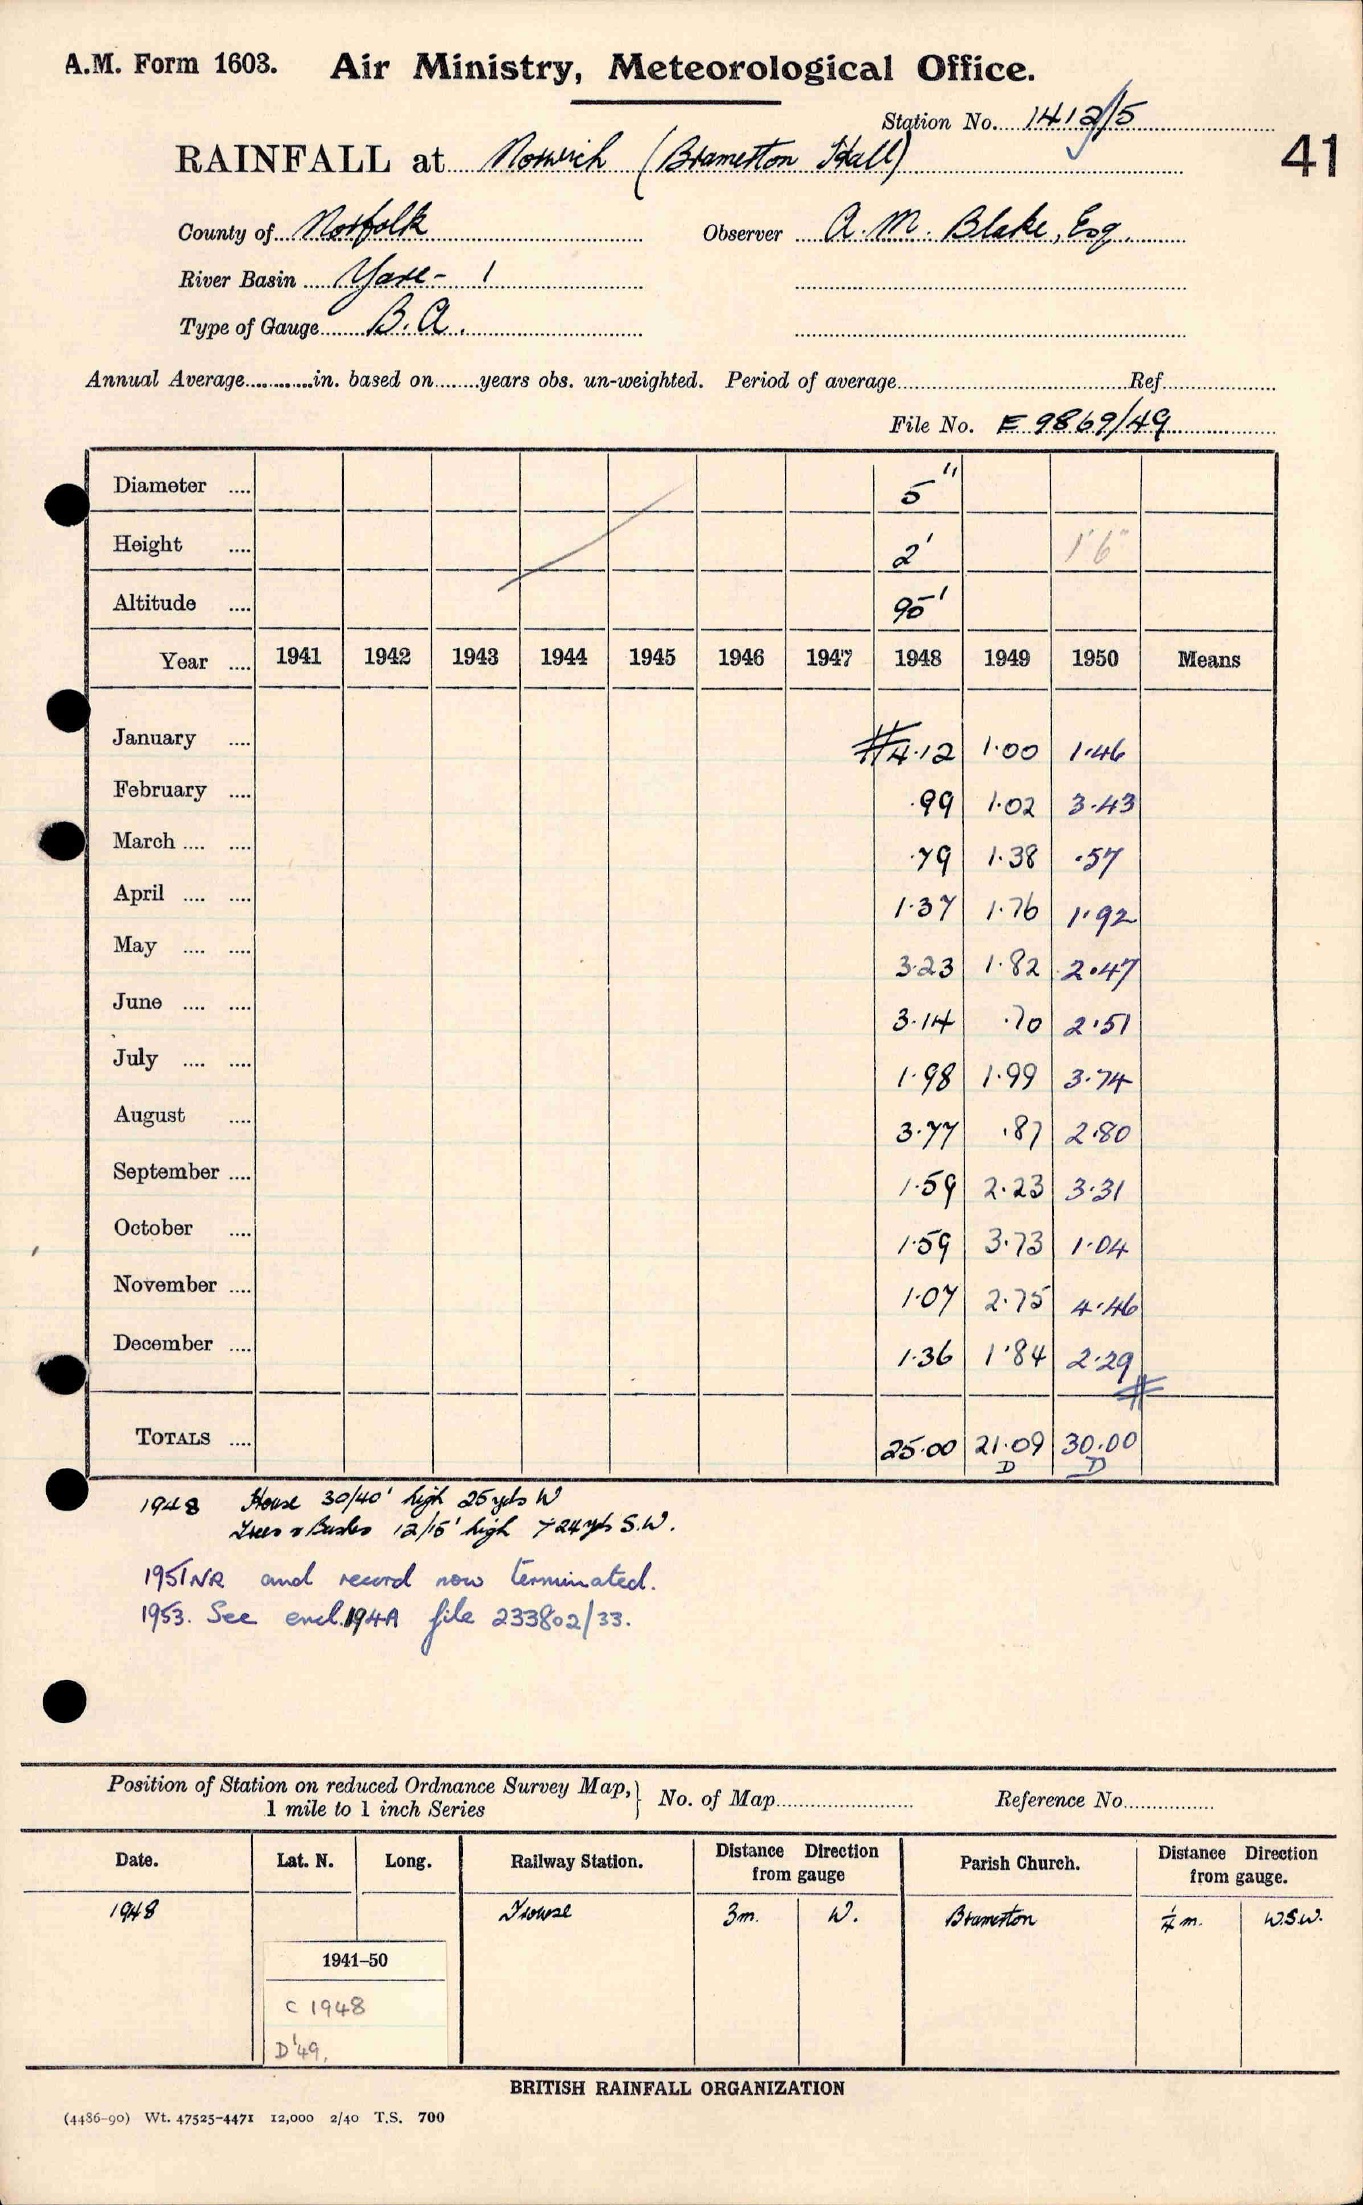 A.M. Form 1603. Air Ministry, Meteorological Office.
Station No. 1412/5
41
RAINFALL at Norwich (Bramerton Hall)
County of Norfolk Observer A. M. Blake, Esq.
River Basin Yare - 1
Type of Gauge B.A.
Annual Average............in. based on........years obs. un-weighted. Period of average............Ref............
File No. E 9869/49
Diameter .... 5"
Height .... 2' 1'6"
Altitude .... 95'
Year .... 1941 1942 1943 1944 1945 1946 1947 1948 1949 1950 Means
January .... # 4.12 1.00 1.46
February .... .99 1.02 3.43
March .... .... .79 1.38 .57
April .... .... 1.37 1.76 1.92
May .... .... 3.23 1.82 2.47
June .... .... 3.14 .70 2.51
July .... .... 1.98 1.99 3.74
August .... 3.77 .87 2.80
September .... 1.59 2.23 3.31
October .... 1.59 3.73 1.04
November .... 1.07 2.75 4.46
December .... 1.36 1.84 2.29 #
TOTALS .... 25.00 21.09 30.00
D D
1948 House 30/40' high 25 yds W
Trees & Bushes 12/15' high 24 yds S.W.
1951 NR and record now terminated.
1953. See encl. 194A file 233802/33.
Position of Station on reduced Ordnance Survey Map, } No. of Map............ Reference No............
1 mile to 1 inch Series
Date. Lat. N. Long. Railway Station. Distance Direction from gauge Parish Church. Distance Direction from gauge.
1948 Trowse 3m. W. Bramerton ¼ m. W.S.W.
1941–50
C 1948
D'49.
BRITISH RAINFALL ORGANIZATION
(4486-90) Wt. 47525-4471 12,000 2/40 T.S. 700